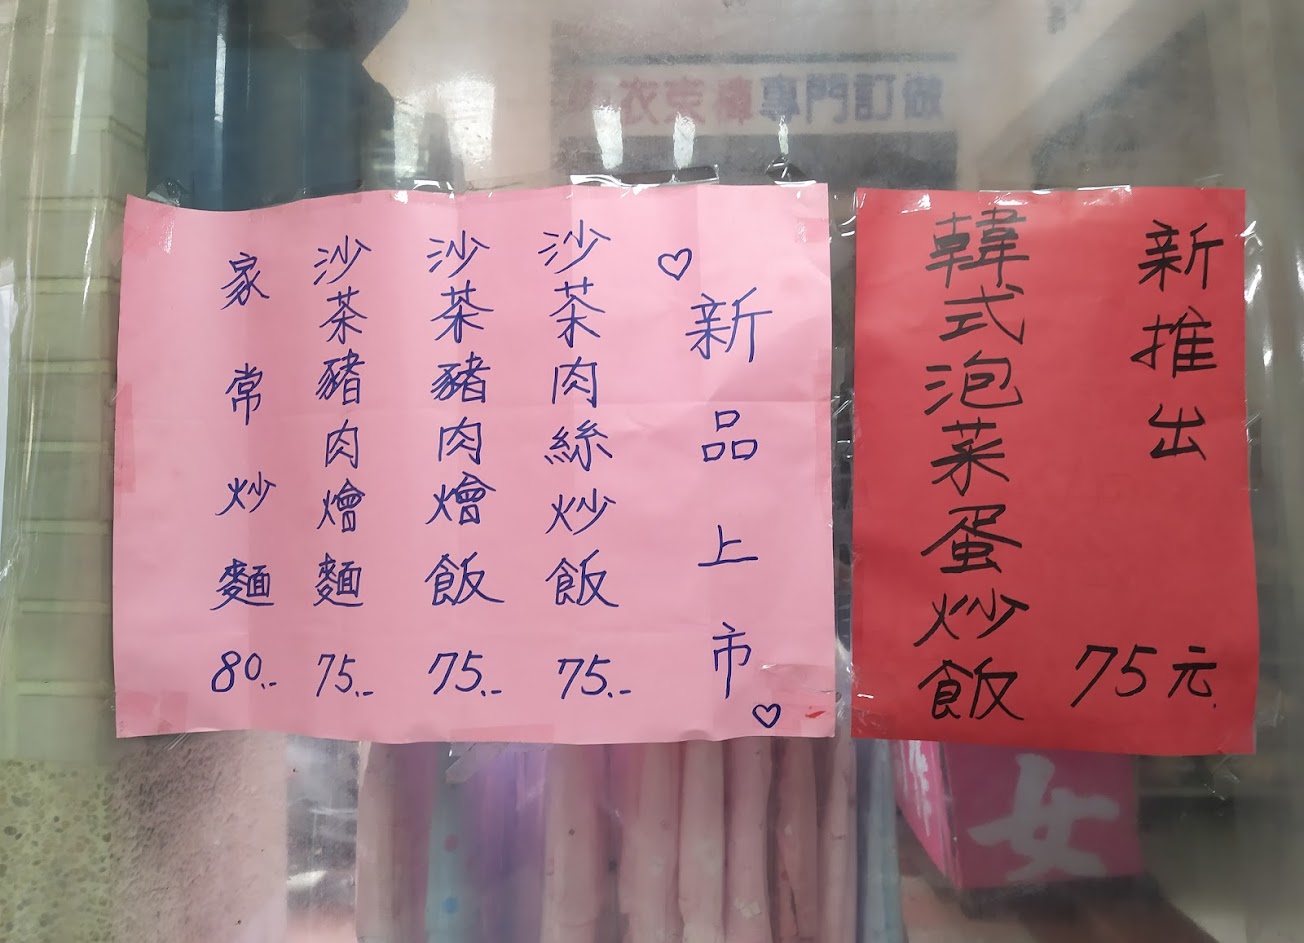 新推出
75元.
韓式泡菜蛋炒飯
♡新品上市♡
沙茶肉絲炒飯 75.-
沙茶豬肉燴飯 75.-
沙茶豬肉燴麵 75.-
家常炒麵 80.-
專門訂做
女